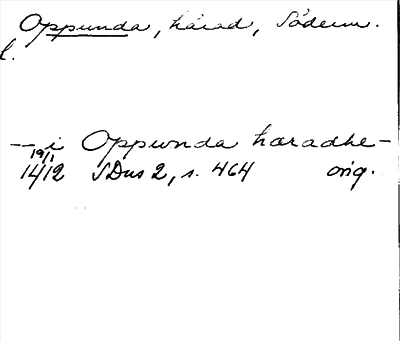 Oppunda, härad, Söderm.
l.
— i Oppunda hæradhe —
19/1
1412 SDns 2, s. 464 orig.